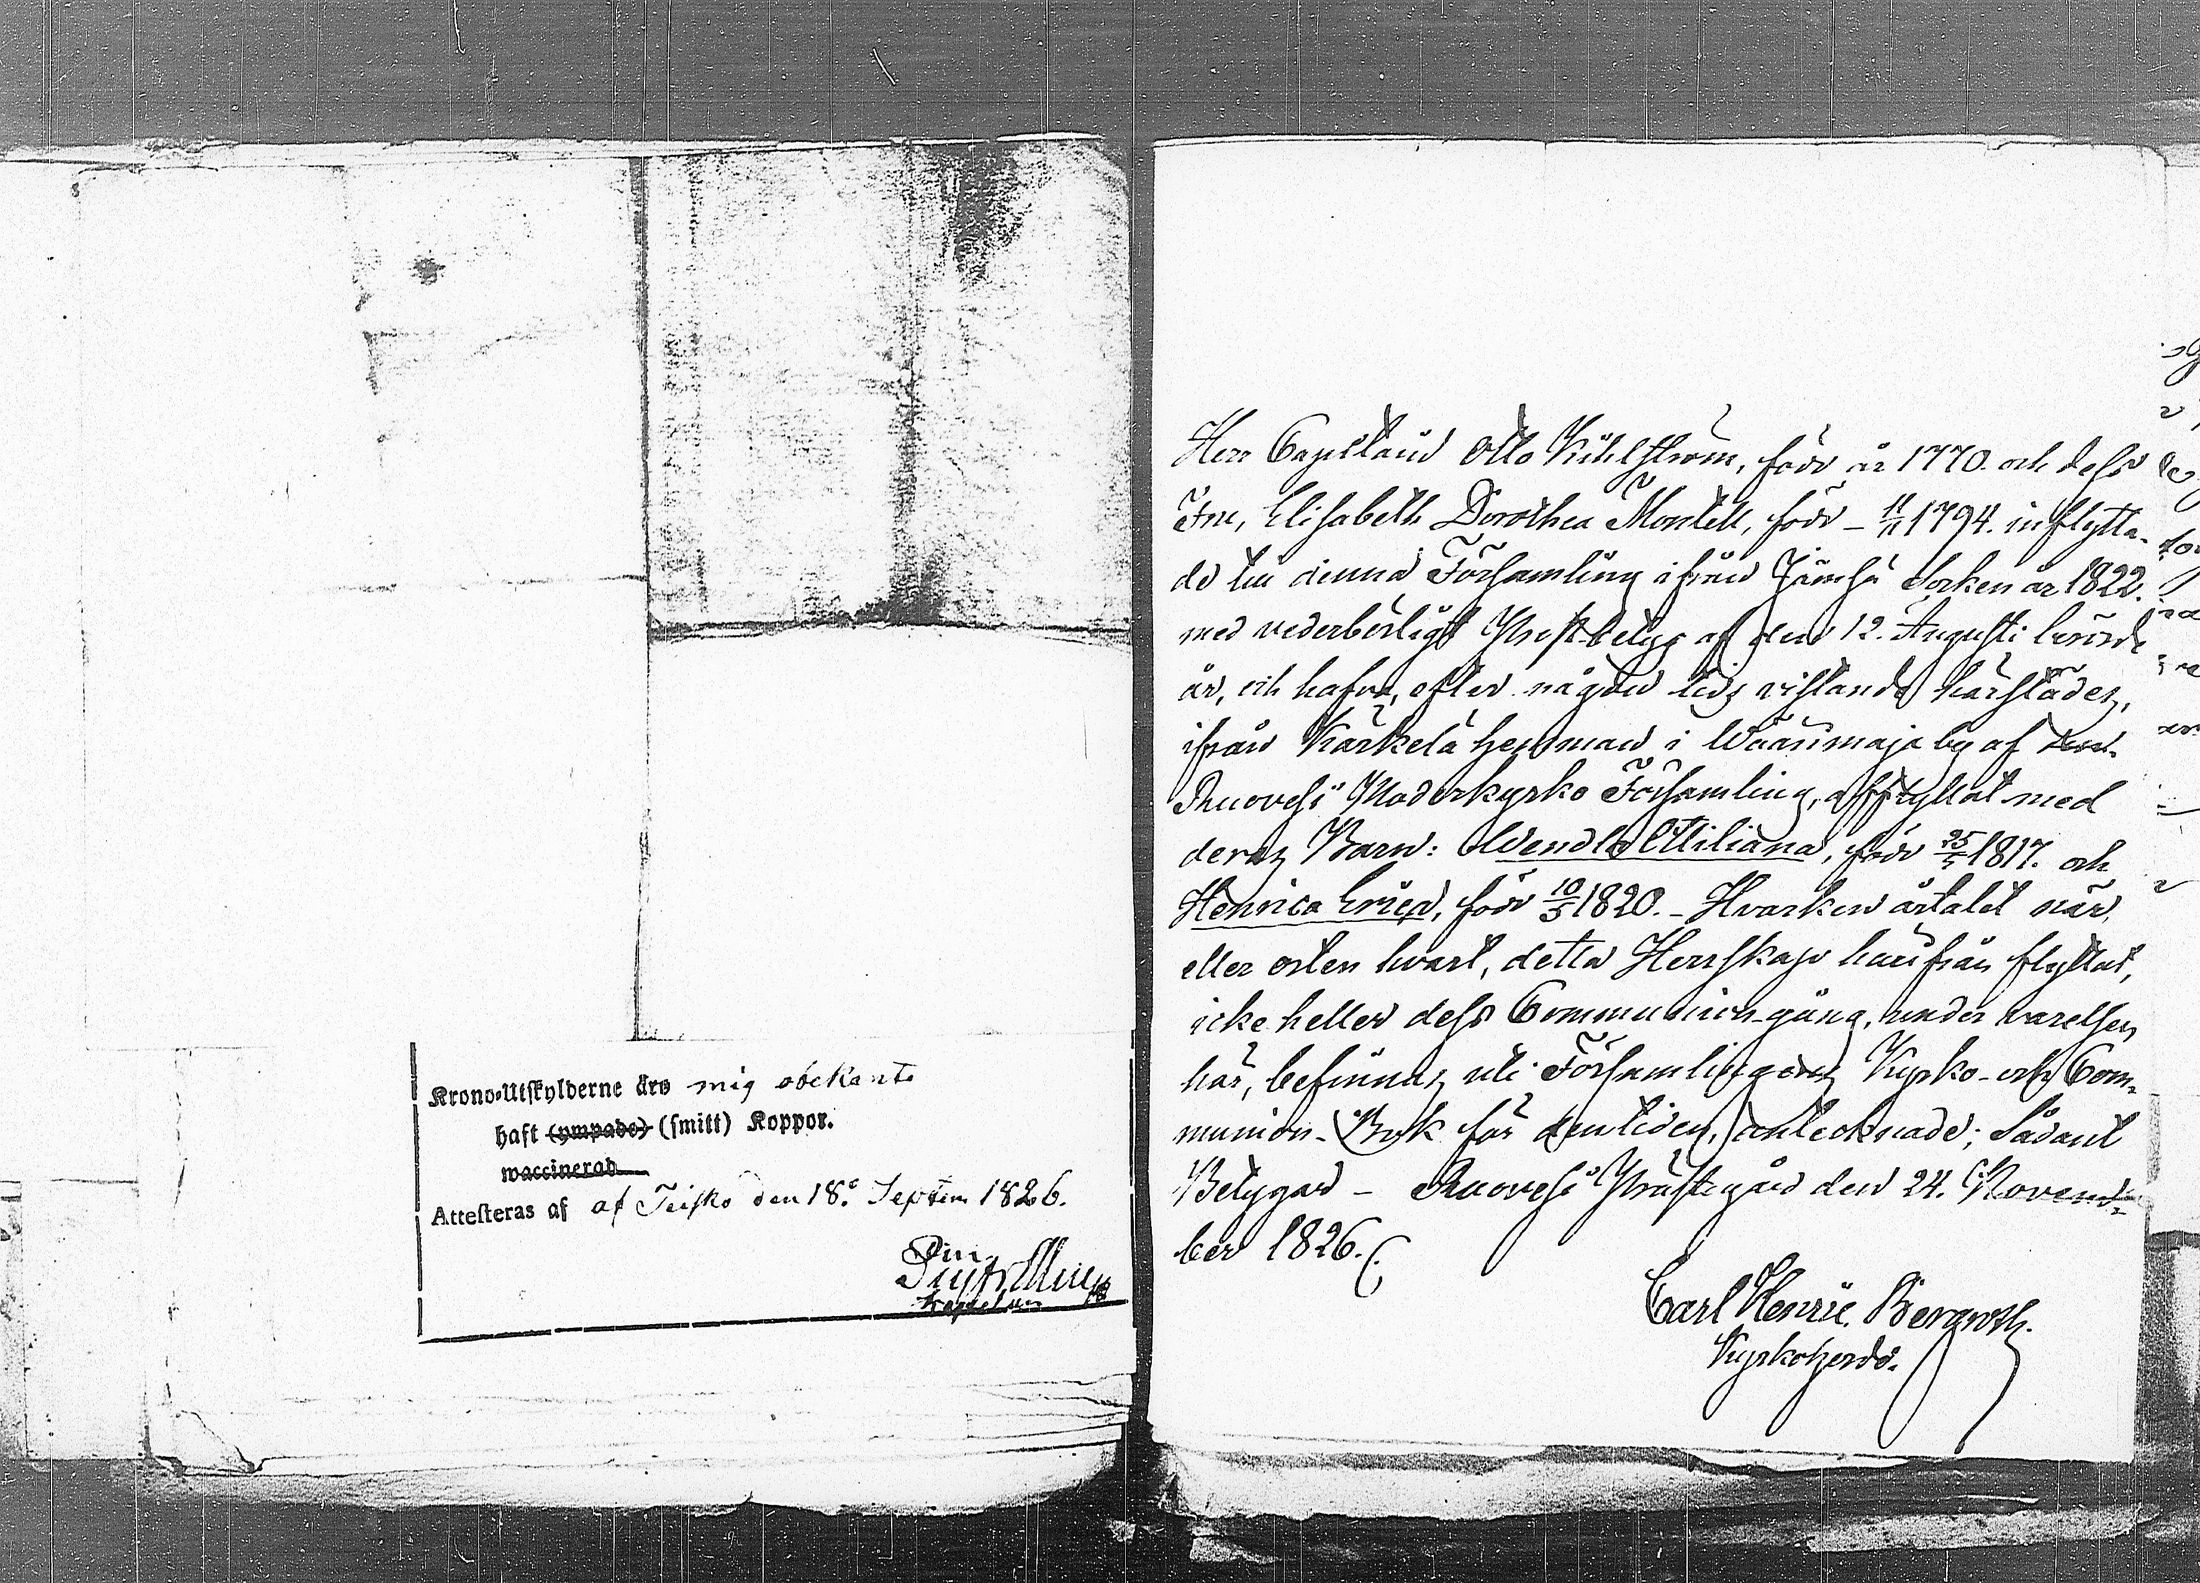 Krono-Utskylderne äro mig obekante
haft (ympade) (smitt) Koppor.
waccinerad
Attesteras af af Teisko den 18:e Septem 1826.
Kapellan
Herr Capitain Otto Kühlström, född år 1770. och dess
Fru, Elisabeth Dorothea Montell, född - 11/11 1794. inflytta-
de till denna Församling ifrån Jämsä Socken år 1822.
med vederbörligt Prestbetyg af den 12. Augusti berörde
år, och hafva, efter någon tids vistande härstädes,
ifrån Kärkelä hemman i Wäärimaja by af
Ruovesi Moderkyrko Församling, afflyttat med
deras Barn: Wendla Ottiliana, född 25/5 1817. och
Henrica Erica, född 10/5 1820. - Hvarken årtalet när,
eller orten hvart, detta Herrskap härifrån flyttat,
icke heller dess Communion-gång, under varelsen
här, befinnas uti Församlingens Kyrko- och Com-
munion-Bok för den tiden, antecknade; Sådant
Betygar - Ruovesi Prästegård den 24. Novem-
ber 1826.
Carl Henric Bergroth.
Kyrkoherde.